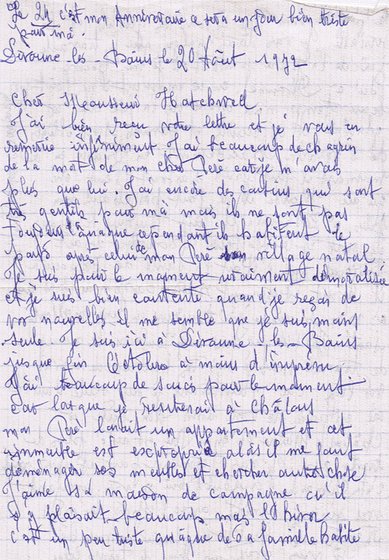 Le 21 c'est mon Anniversaire ce sera un jour bien triste
pour moi.
Divonne-les-Bains le 20 Août 1972
Cher Monsieur Hatchwell.
J'ai bien reçu votre lettre et je vous en
remercie infiniment J'ai beaucoup de chagrin
de la mort de mon cher Père car je n'avais
plus que lui. J'ai encore des cousins qui sont
très gentils pour moi mais ils ne sont pas
toujours quoique cependant ils habitent le
pays celui de mon Père village natal
Je suis pour le moment vraiment démoralisée
et je suis bien contente quand je reçois de
vos nouvelles il me semble que je suis moins
seule Je suis ici à Divonne-les-Bains
jusque fin Octobre à moins d'imprévu
J'ai beaucoup de soucis pour le moment
car lorsque je rentrerai à Châlons
mon Père louait un appartement et cet
immeuble est exproprié alors il me faut
déménager ses meubles et chercher autre chose
J'aime la maison de campagne
plaisait beaucoup mais l'hiver
c'est un peu triste quoique de la famille habite